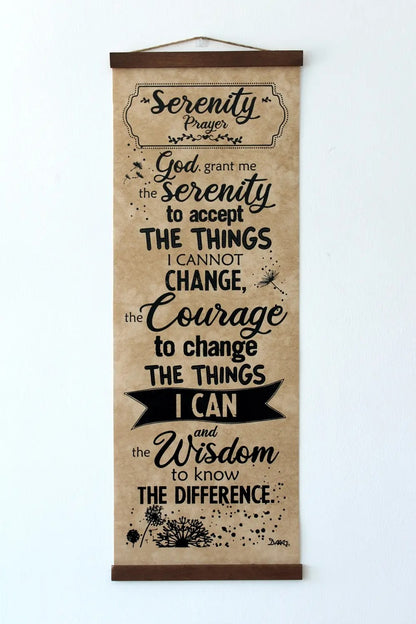 Serenity
Prayer
God, grant me
the Serenity
to accept
THE THINGS
I CANNOT
CHANGE,
the Courage
to change
THE THINGS
I CAN
and
the Wisdom
to know
THE DIFFERENCE.